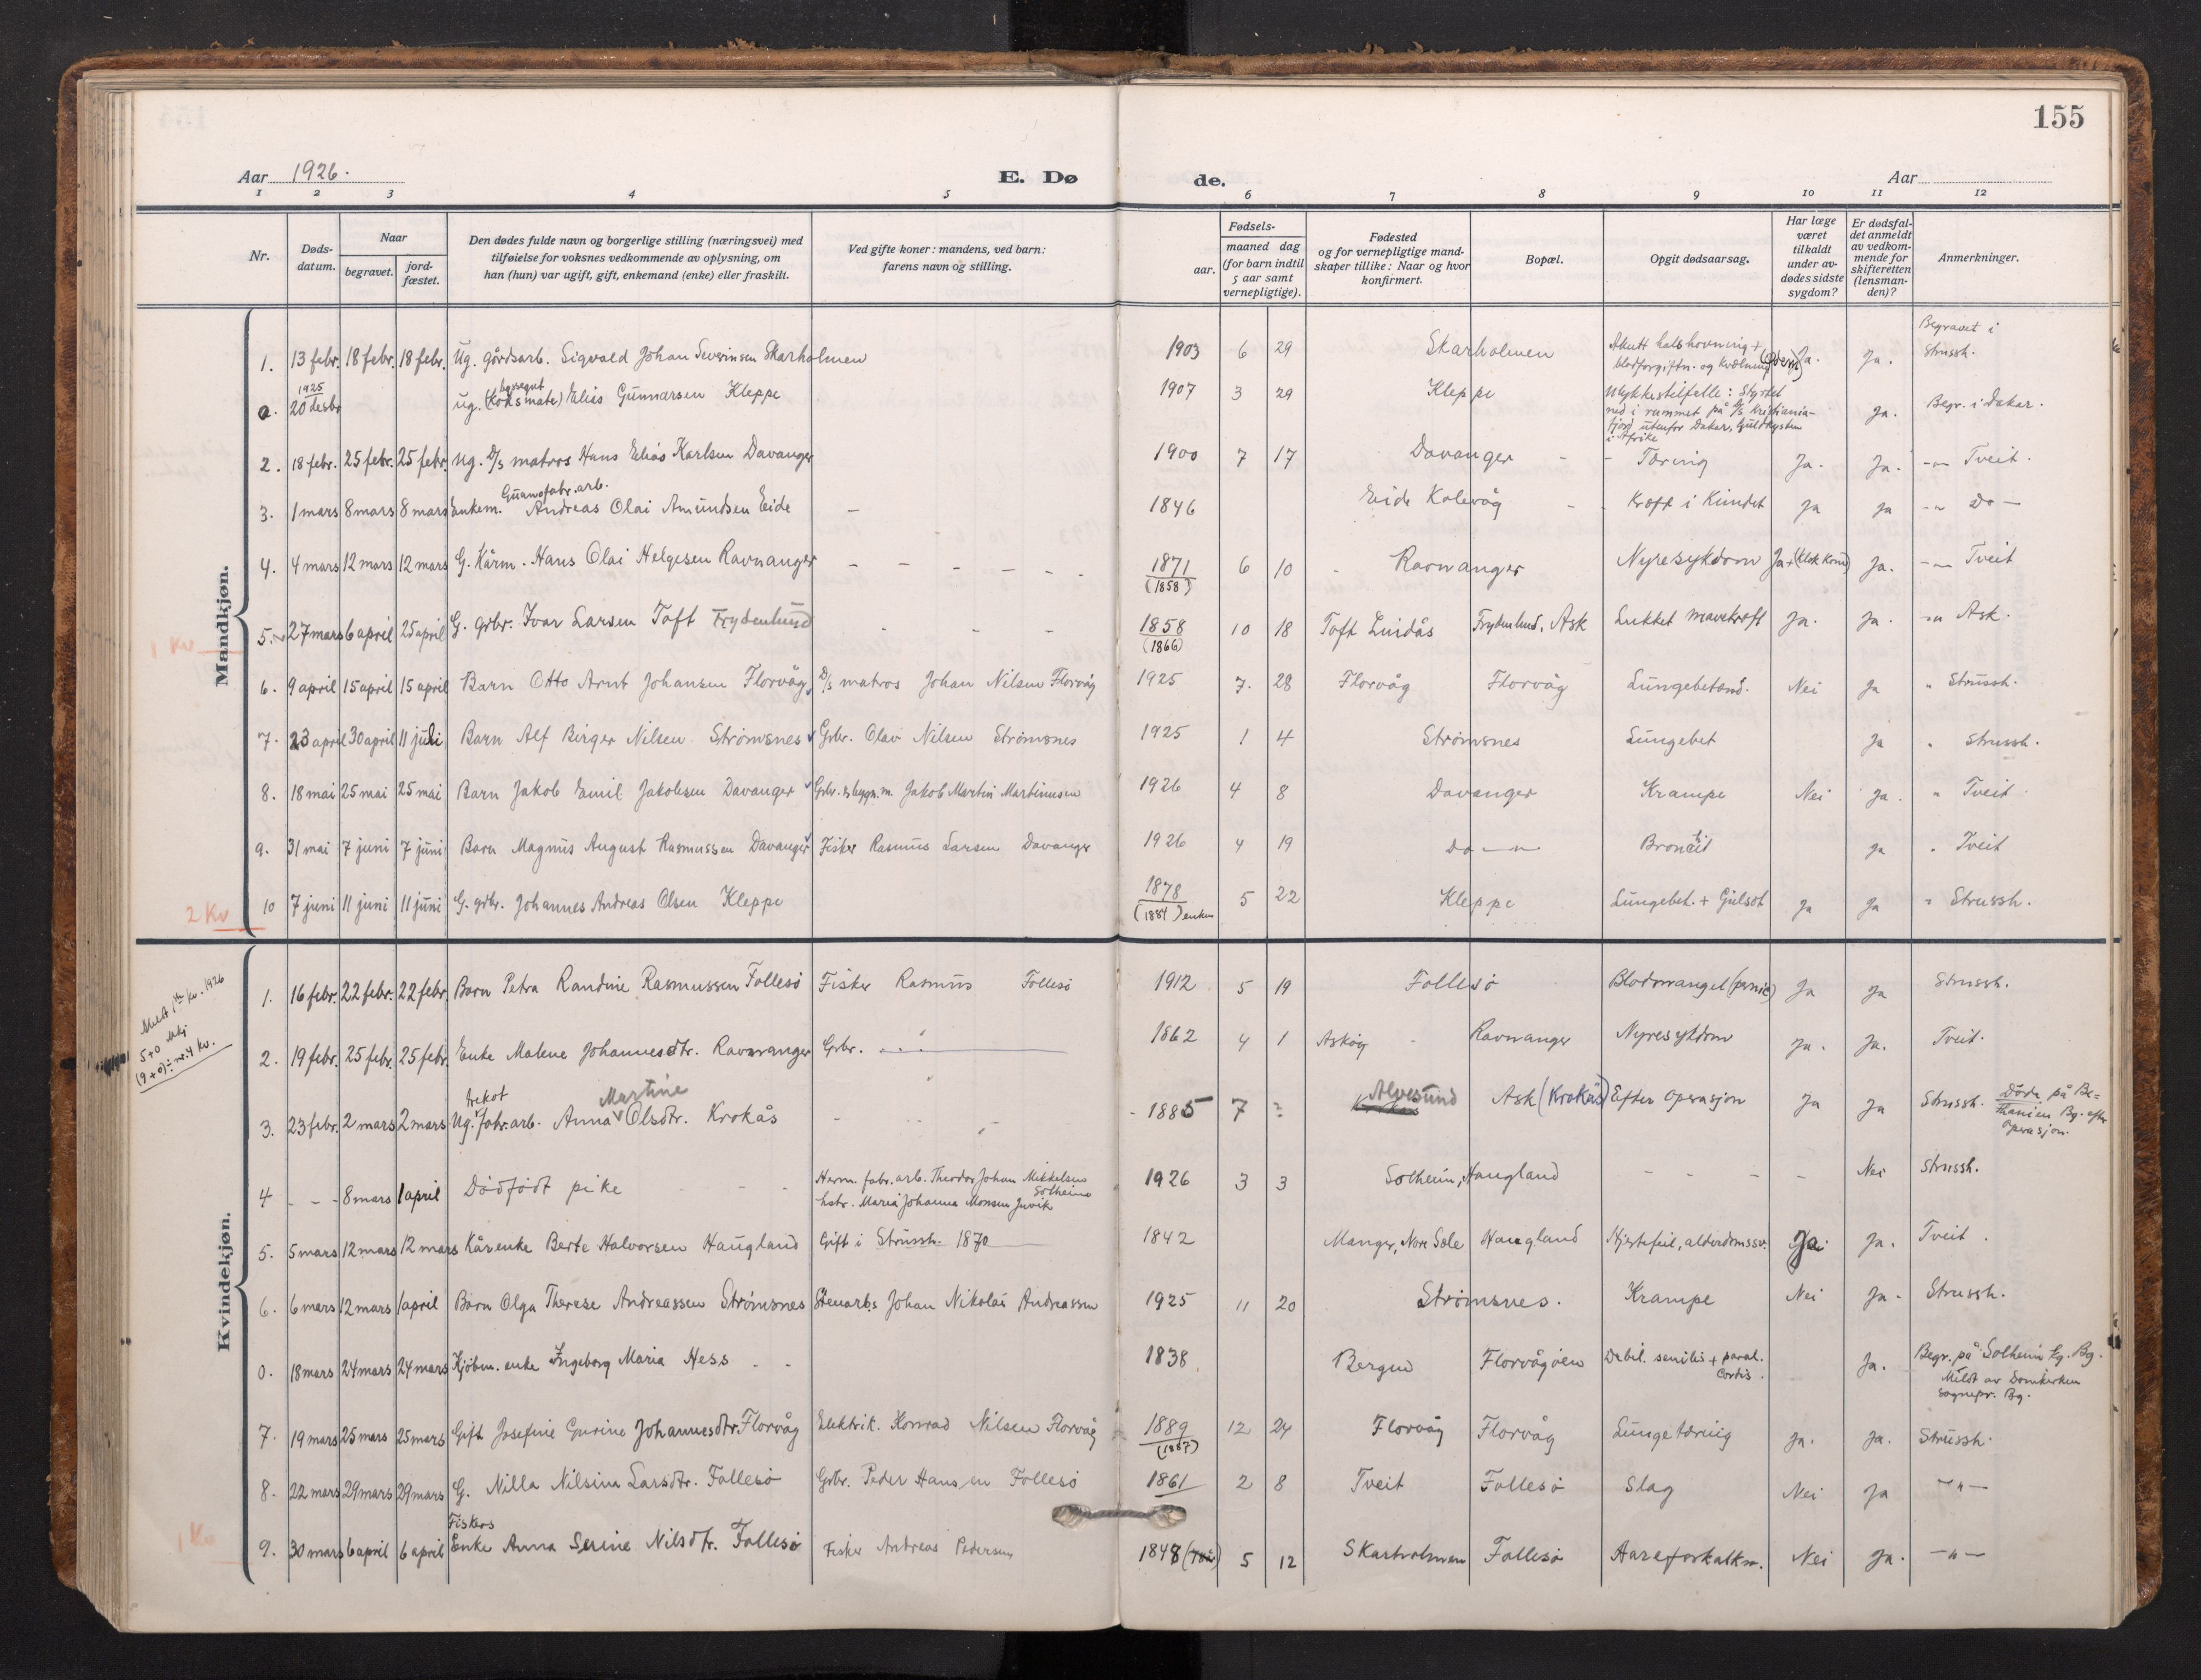 155
Aar 1926.
E. Dø
de.
Aar
1 2 3 4 5 6 7 8 9 10 11 12
Nr.
Døds-
datum.
Naar
begravet.
jord-
fæstet.
Den dødes fulde navn og borgerlige stilling (næringsvei) med
tilføielse for voksnes vedkommende av oplysning, om
han (hun) var ugift, gift, enkemand (enke) eller fraskilt.
Ved gifte koner: mandens, ved barn:
farens navn og stilling.
Fødsels-
aar.
maaned dag
(for barn indtil
5 aar samt
vernepligtige).
Fødested
og for vernepligtige mand-
skaper tillike: Naar og hvor
konfirmert.
Bopæl.
Opgit dødsaarsag.
Har læge
været
tilkaldt
under av-
dødes sidste
sygdom?
Er dødsfal-
det anmeldt
av vedkom-
mende for
skifteretten
(lensman-
den)?
Anmerkninger.
Mandkjøn.
1. 13 febr. 18 febr. 18 febr. Ug. gårdsarb. Sigvald Johan Severinsen Skarholmen 1903 6 29 Skarholmen Akutt halshovning + blodforgiftn. og kvælning Ja. Ja. Begravet i Strussh.
0. 1925 20 desbr Ug. byssegut (koksmate) Elias Gunnarsen Kleppe 1907 3 29 Kleppe Ulykkestilfelle: Styrtet ned i rummet på D/S Kristiania-fjord utenfor Dakar, Guldkysten i Afrika Ja. Begr. i Dakar.
2. 18 febr. 25 febr. 25 febr. Ug. D/s matros Hans Elias Karlsen Davanger 1900 7 17 Davanger - - Tæring Ja. Ja. -"- Tveit.
3. 1 mars 8 mars 8 mars Enkem. Guanofabr. arb. Andreas Olai Amundsen Eide - 1846 Eide Kolevåg - Kræft i Kundet Ja Ja -"- Do -
4. 4 mars 12 mars 12 mars G. Kårm. Hans Olai Helgesen Ravnanger 1871 (1858) 6 10 Ravnanger Nyresykdom Ja + (Klok kone) Ja. -"- Tveit
5. 27 mars 6 april 25 april G. grbr. Ivar Larsen Toft Frydenlund 1858 (1866) 10 18 Toft Lindås Frydenlund, Ask Lukket mavekræft Ja. Ja. -"- Ask.
1 Kv
6. 9 april 15 april 15 april Barn Otto Arnt Johansen Florvåg D/s matros Johan Nilsen Florvåg 1925 7. 28 Florvåg Florvåg Lungebetænd. Nei Ja " Strussh.
7. 23 april 30 april 11 juli Barn Alf Birger Nilsen Strømsnes Grbr. Olav Nilsen Strømsnes 1925 1 4 Strømsnes Lungebet Ja " Strussh.
8. 18 mai 25 mai 25 mai Barn Jakob Emil Jakobsen Davanger Jakob Martin Martinusen 1926 4 8 Davanger Krampe Nei Ja. " Tveit
9. 31 mai 7 juni 7 juni Barn Magnus August Rasmussen Davanger Fisker Rasmus Larsen Davanger 1926 4 19 Do -"- Bronkit Ja " Tveit
10 7 juni 11 juni 11 juni G. grbr. Johannes Andreas Olsen Kleppe 1878 (1884) enken 5 22 Kleppe Lungebet. + Gulsot Ja Ja " Strussh.
2 Kv
Kvindekjøn.
Meldt 1ste kv. 1926
5+0 Mkj
(9+0) ÷ nr. 4 Kv.
1. 16 febr. 22 febr. 22 febr. Barn Petra Randine Rasmussen Follesø Fisker Rasmus Follesø 1912 5 19 Follesø Blodmangel (pernic) Ja Ja Strussh.
2. 19 febr. 25 febr. 25 febr. Enke Malene Johannesdtr. Ravnanger Grbr. 1862 4 1 Askøy Ravnanger Nyresykdom Ja. Ja. Tveit.
3. 23 febr. 2 mars 2 mars Ug. trikot fabr. arb. Anna Martine Olsdtr. Krokås - 1885 7 ? Alvesund Ask (Krokås) Efter operasjon Ja Ja Strussh. Døde på Be-thanien Bg. efter operasjon.
4 - - - 8 mars 1 april Dødfødt pike Herm. fabr. arb. Theodor Johan Mikkelsen Solheim hstr. Maria Johanna Monsen Juvik 1926 3 3 Solheim, Haugland - - - - Nei Strussh.
5. 5 mars 12 mars 12 mars Kårenke Berte Halvorsen Haugland Gift i Strussh. 1870 1842 Manger, Nore Sæle Haugland Hjertefeil, alderdomssv. Ja Ja. Tveit.
6. 6 mars 12 mars 1 april Barn Olga Therese Andreassen Strømsnes Stenarb.s Johan Nikolai Andreassen 1925 11 20 Strømsnes. Krampe Nei Ja. Strussh.
0. 18 mars 24 mars 24 mars Kjøbm. enke Ingeborg Maria Hess - - 1838 Bergen Florvågøen Debil. senilis + paral. cordis. Ja. Begr. på Solheim kg. Bg. Meldt av Domkirken sognepr. Bg.
7. 19 mars 25 mars 25 mars Gift Josefine Gurine Johannesdtr. Florvåg Elektrik. Konrad Nilsen Florvåg 1889 (1887) 12 24 Florvåg Florvåg Lungetæring Ja. Ja. Strussh.
8. 22 mars 29 mars 29 mars G. Nilla Nilsina Larsdtr. Follesø Grbr. Peder Hansen Follesø 1861 2 8 Tveit Follesø Slag Nei Ja -"-
9. 30 mars 6 april 6 april Fiskers Enke Anna Serine Nilsdtr. Follesø Fisker Andreas Pedersen 1848 5 12 Skarholmen Follesø Aareforkalkn. Nei Ja. -"-
1 Kv